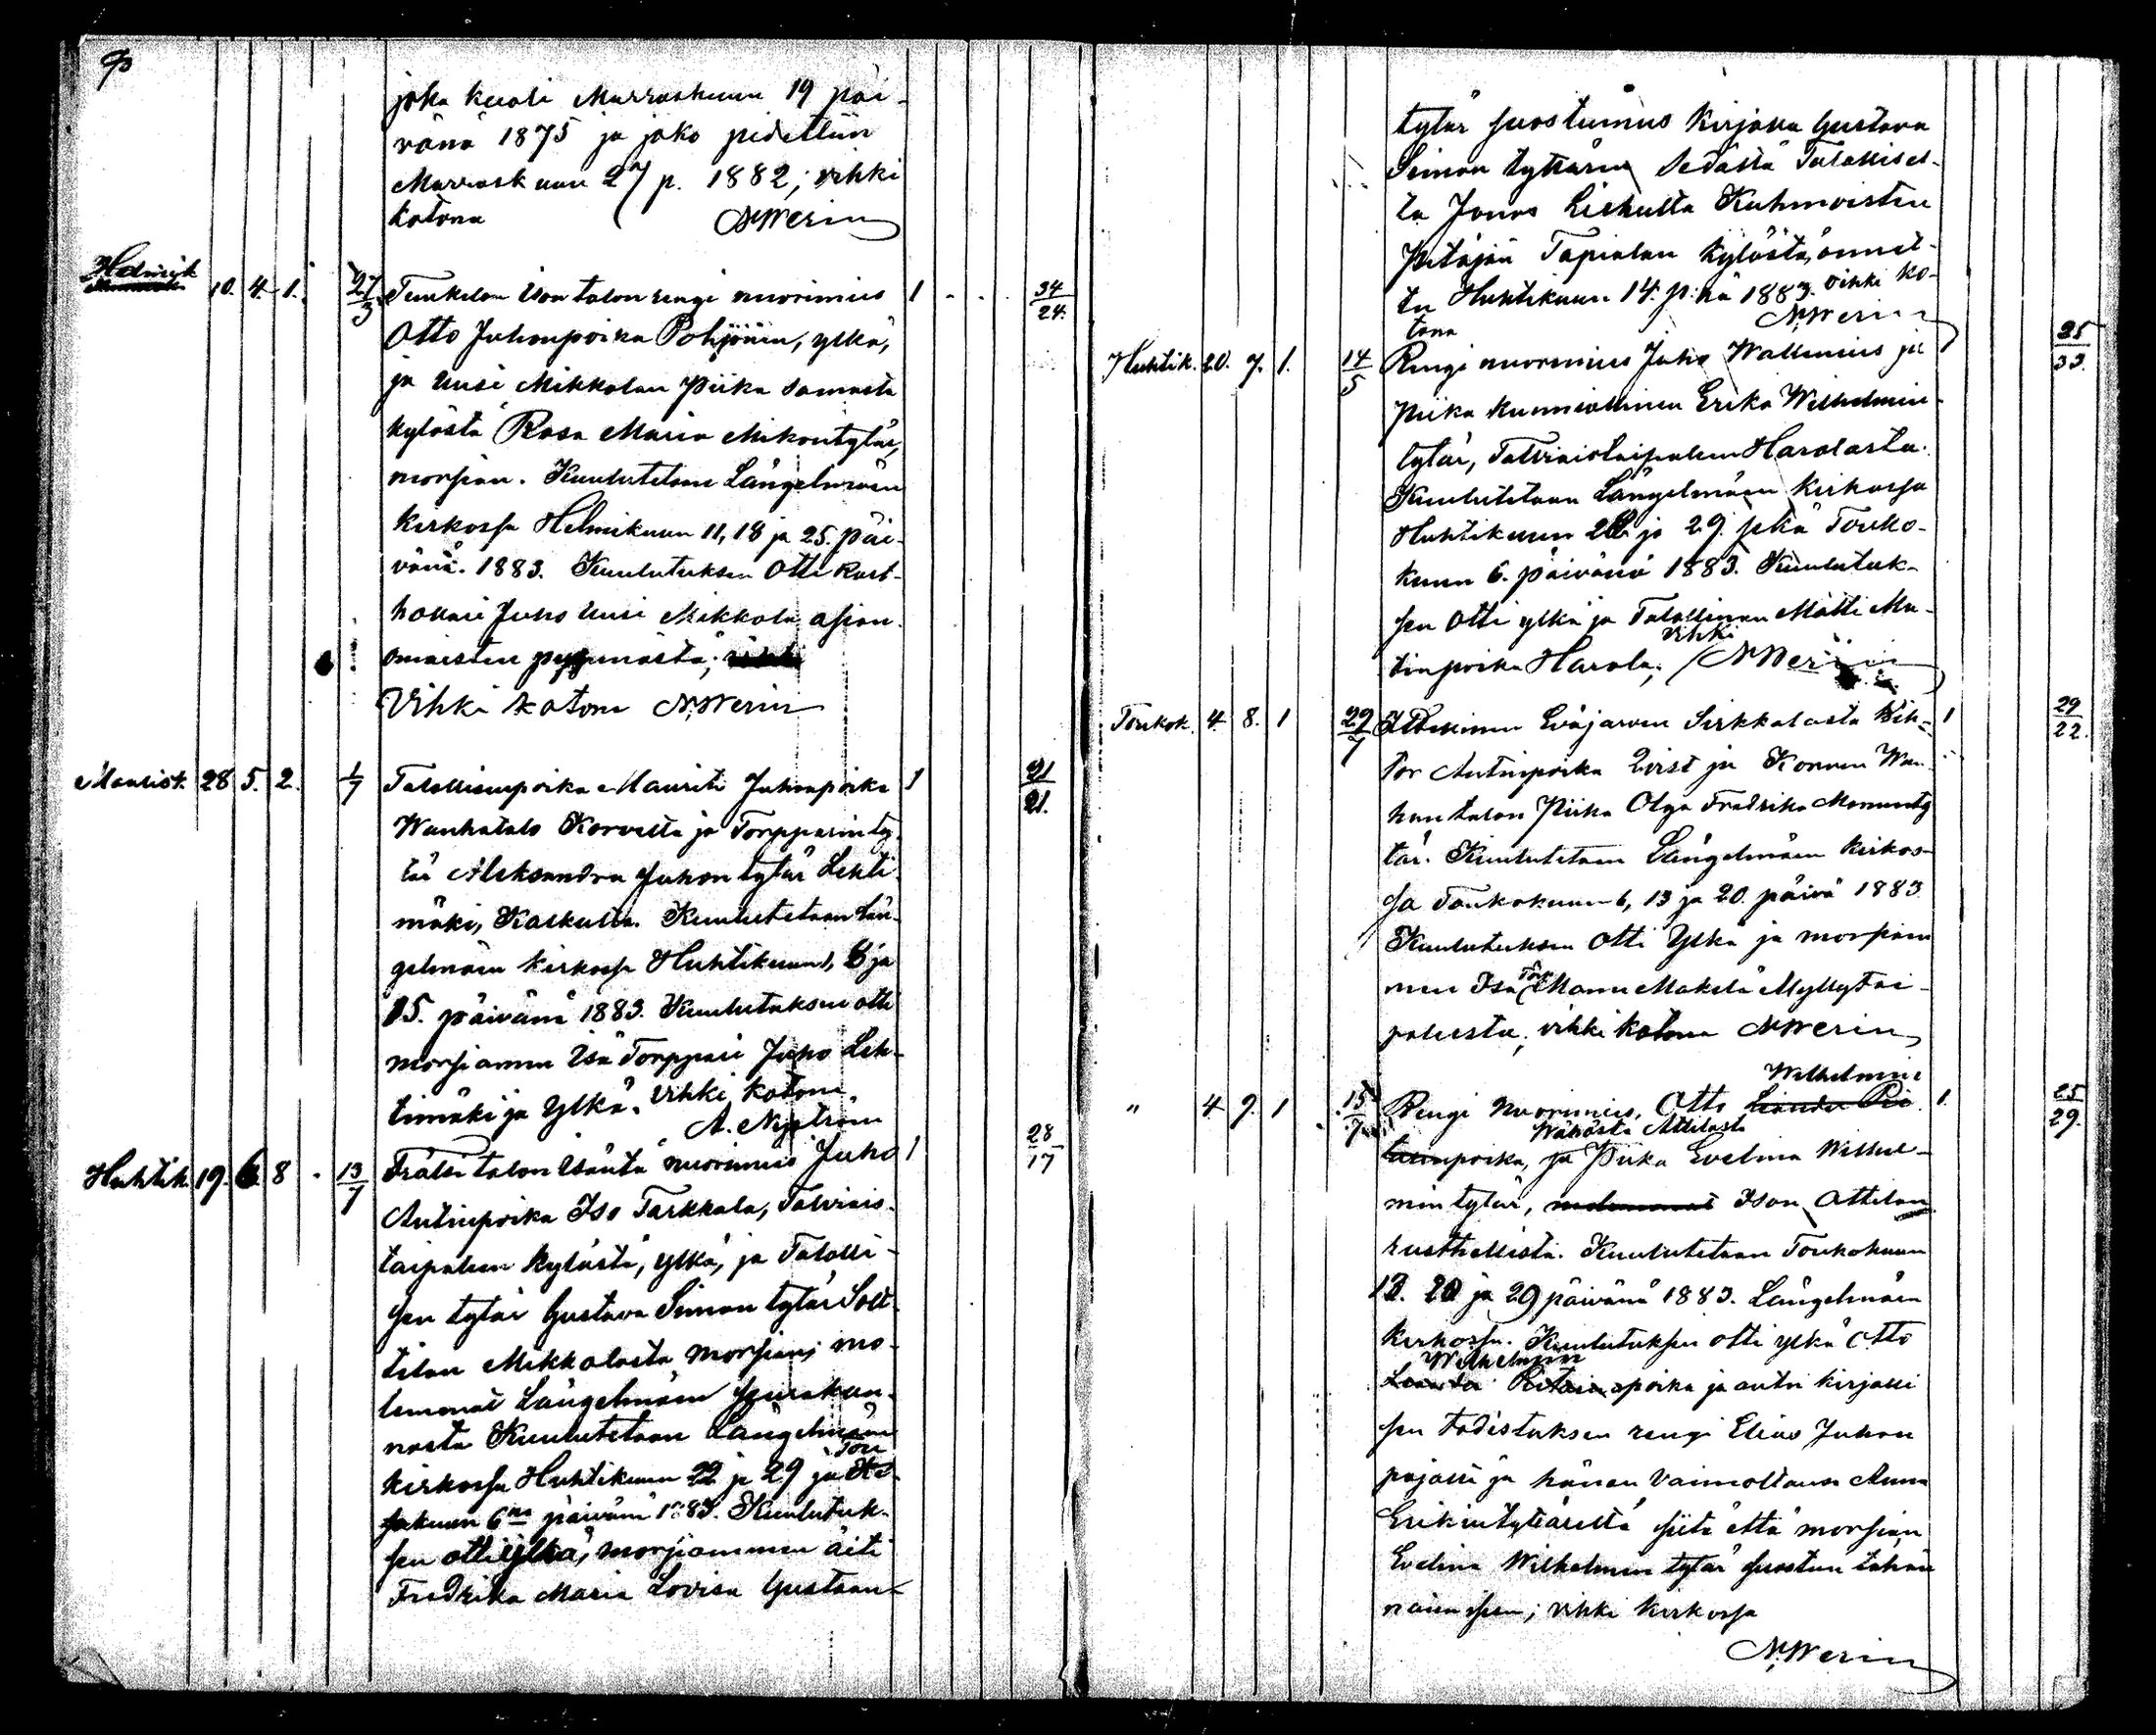 joka kuoli Marraskuun 19 päi-
vänä 1875 ja jako pidettiin
Marraskuun 27 p. 1882; vihki
kotona N. Werin
Helmik 10. 4. 1. 27/3 Tunkelon Ison talon rengi nuorimies 1 34/24
Otto Juhonpoika Pohjonen, ylkä,
ja Uusi Mikkolan Piika samasta
kylästä Rosa Maria Mikontytär,
morsian. Kuulutetaan Längelmäen
kirkossa Helmikuun 11, 18 ja 25. päi-
vänä. 1883. Kuulutuksen Otti Rust-
hollari Juho Uusi Mikkola asian-
omaisten pyynnöstä;
Vihki kotona N. Werin
Maalisk. 28 5. 2. 1/7 Talollisenpoika Mauriti Juhonpoika 1 21/21.
Wanhatalo Korvelta ja Torpparin ty-
tär Aleksandra Juhon tytär Lehti-
mäki, Kaskulta. Kuulutetaan Län-
gelmäen kirkossa Huhtikuun 1, 8 ja
15. päivänä 1883. Kuulutuksen otti
morsiamen Isä Torppari Juho Leh-
timäki ja Ylkä. Vihki kotona
A. Nyström
Huhtik. 19. 6 8 13/7 Frälsi talon Isäntä nuorimies Juho 1 28/17
Antinpoika Iso Tarkkala, Talviais-
taipaleen kylästä, ylkä, ja Talolli-
sen tytär Gustava Simon tytär Solt-
tilan Mikkolasta morsian; mo-
lemmat Längelmäen seurakun-
nasta Kuulutetaan Längelmäen
kirkossa Huhtikuun 22 ja 29 ja Tou
kokuun 6na päivänä 1883. Kuulutuk-
sen otti ylkä, morsiammen äiti
Fredrika Maria Lovisa Gustaan-
tytär suostumus kirjalla Gustava
Simon tyttären Sedältä Talollisel-
ta Jonas Liehulta Kuhmoisten
Pitäjän Tapialan kylästä, annet-
tu Huhtikuun 14. p:nä 1883. vihki ko-
tona N. Werin
Huhtik. 20. 7. 1. 14/5 Rengi nuorimies Juho Wallenius ja 1 25/33.
Piika kunniallinen Erika Wilhelmin-
tytär, Talviaistaipaleen Haralasta.
Kuulutetaan Längelmäen kirkossa
Huhtikuun 22 ja 29. sekä Touko-
kuun 6. päivänä 1883. Kuulutuk-
sen Otti ylkä ja Talollinen Matti Ma-
tinpoika Harala; Vihki N. Werin
Toukok. 4. 8. 1 29/7 Itsellinen Eväjärven Sirkkalasta Wih- 1 29/22.
tor Antinpoika Qvist ja Korven Wan-
han talon Piika Olga Fredrika Manunty
tär. Kuulutetaan Längelmäen kirkos-
sa Toukokuun 6, 13 ja 20. päivä 1883
Kuulutuksen Otti Ylkä ja morsiam
men Isä Torp. Manu Mäkelä Myllytai-
paleesta; vihki kotona N. Werin
" 4 9. 1 15/7 Rengi Nuorimies, Otto Wilhelmin 1. 25/29.
Wähästä Attilasta
poika, ja Piika Evelina Wilhel-
min tytär, molemmat Ison Attilan
rusthollista. Kuulutetaan Toukokuun
13. 20 ja 29 päivänä 1883. Längelmäen
kirkossa. Kuulutuksen otti ylkä Otto
Wilhelmin
poika ja antoi kirjalli
sen todistuksen rengi Elias Juhon
pojalta ja hänen vaimoltansa Anna
Erikintyttäreltä siitä että morsian
Evelina Wilhelmin tytär suostuu tähän
naimiseen; vihki kirkossa
N. Werin